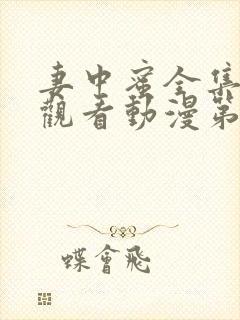 妻中蜜全集
觀看動漫第
蝶會飛